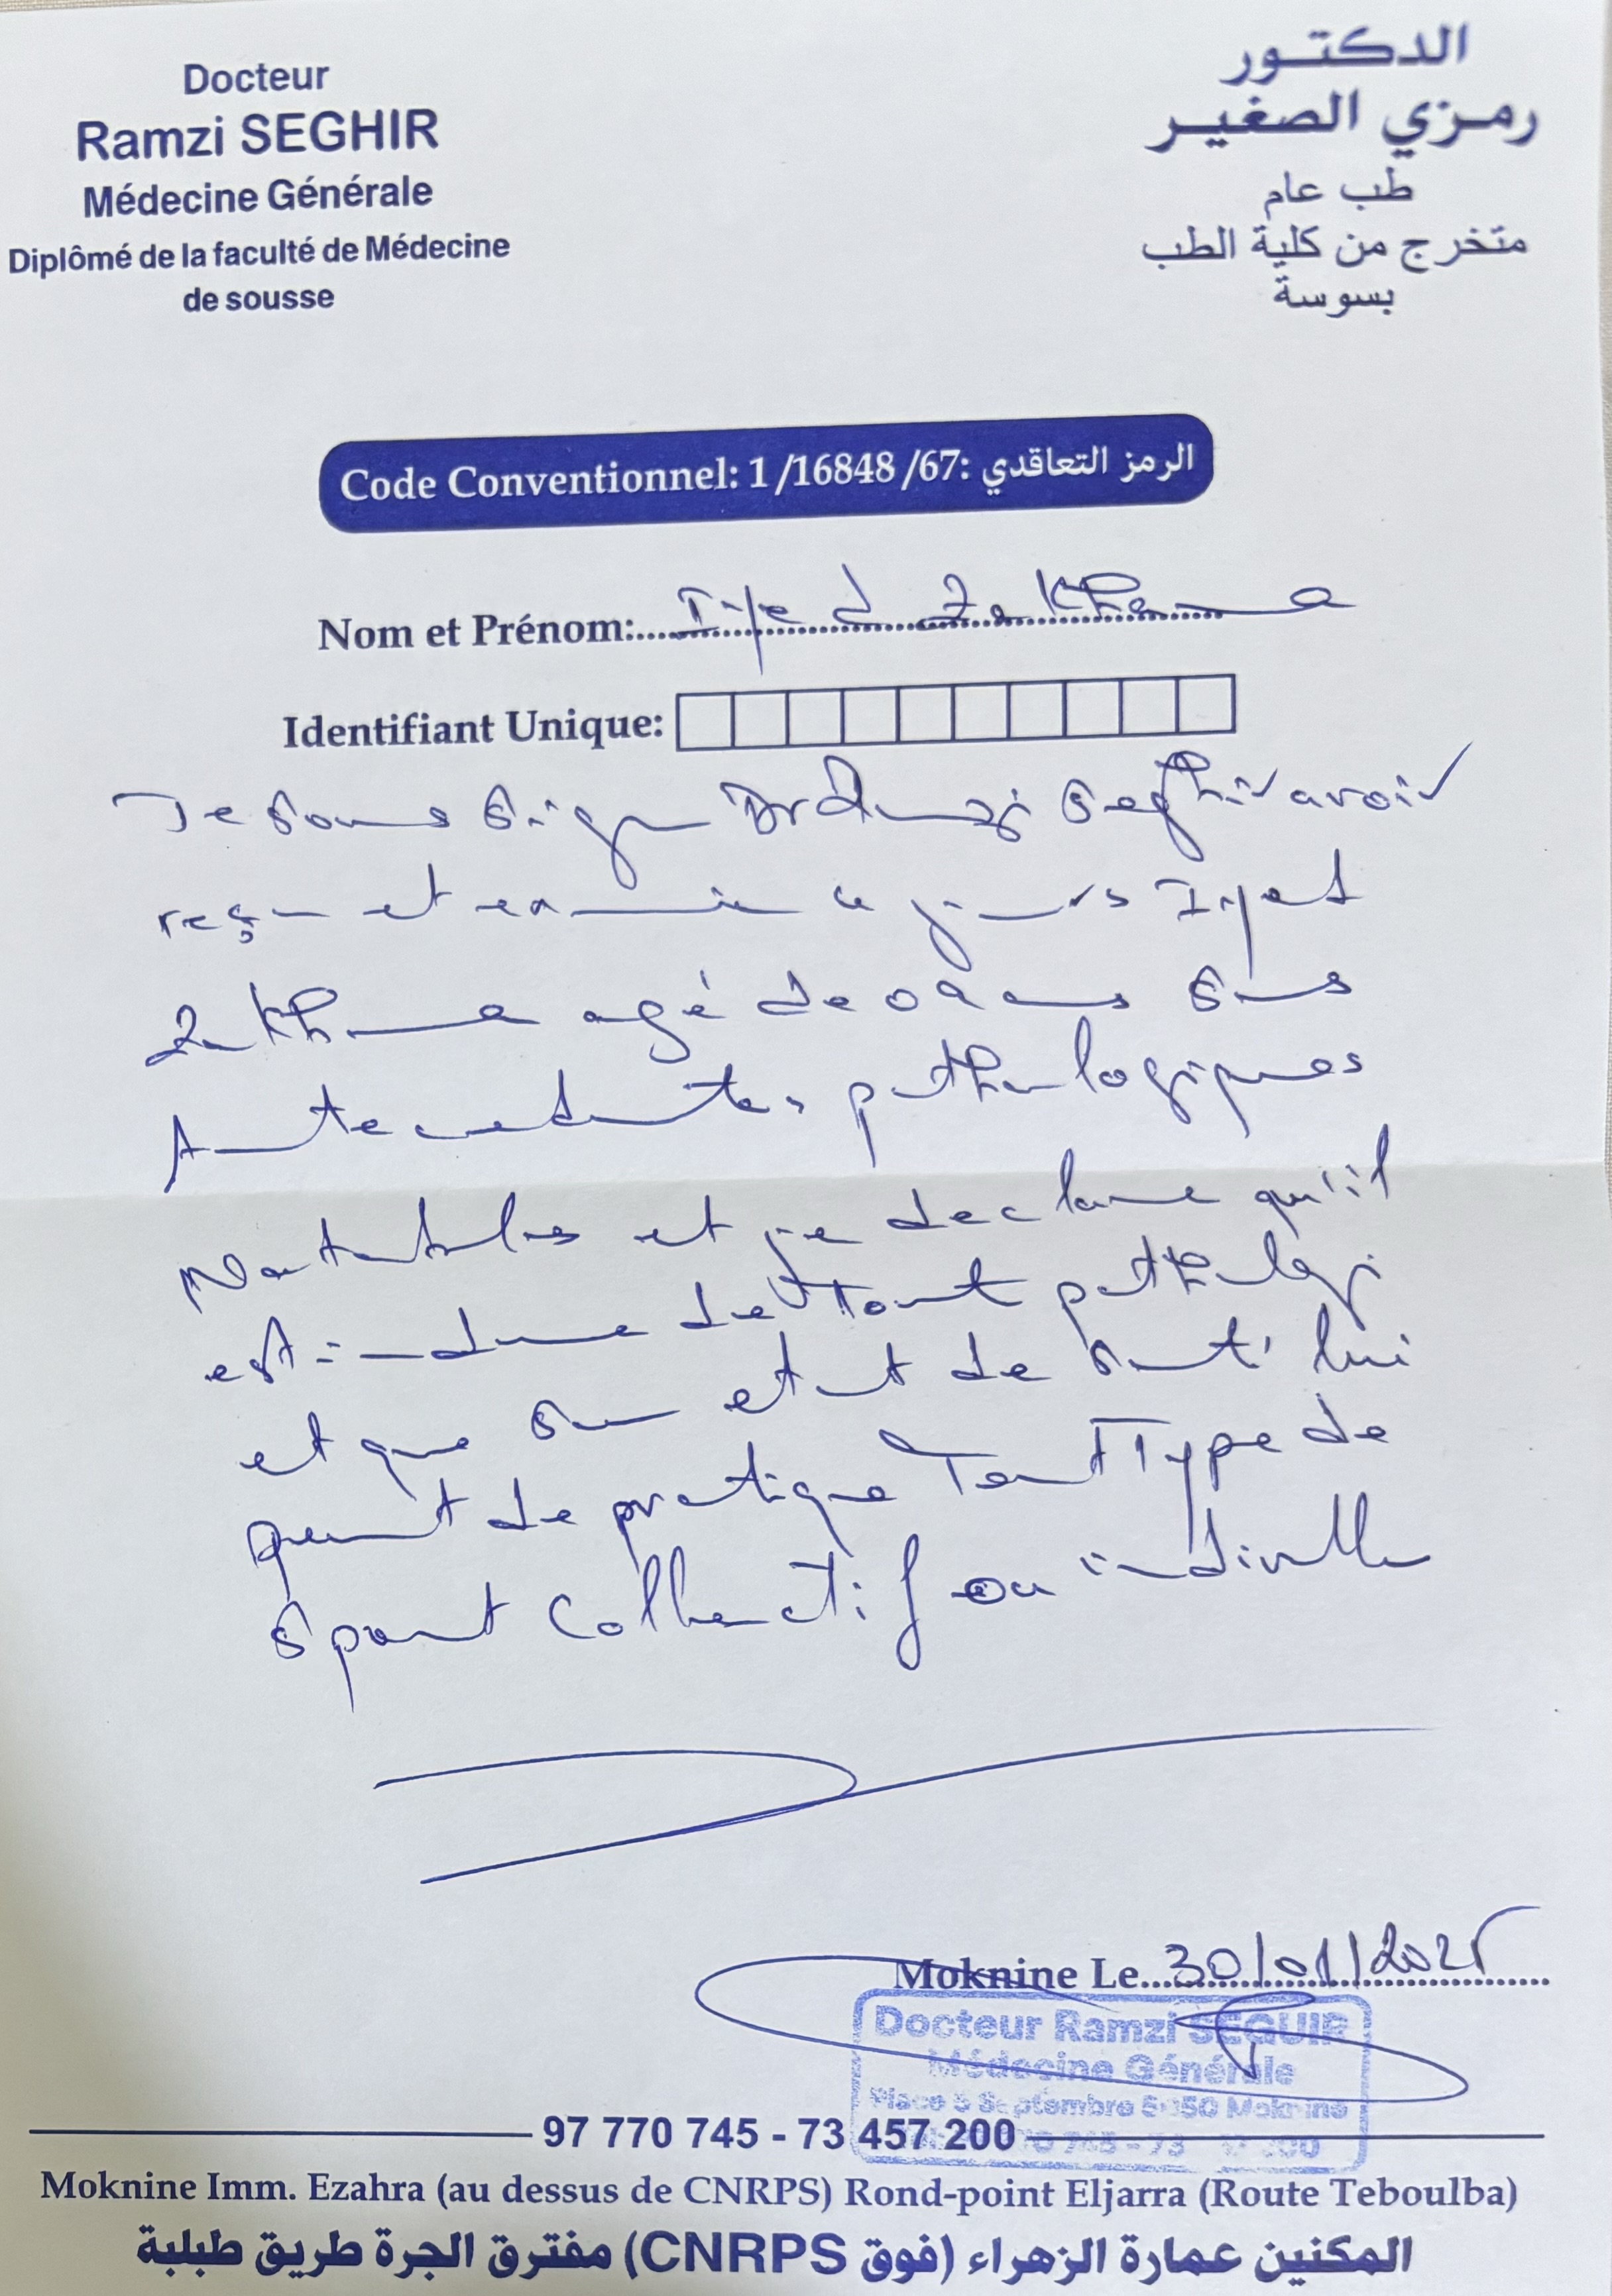 Docteur
Ramzi SEGHIR
Médecine Générale
Diplômé de la faculté de Médecine
de sousse
الدكتور
رمزي الصغير
طب عام
متخرج من كلية الطب
بسوسة
Code Conventionnel: 1/16848/67: الرمز التعاقدي
Nom et Prénom: Iyed Zakhama
Identifiant Unique:
Je sous signe Dr Ramzi Seghir avoir
reçu et examine ce jours Iyed
Zakhama agé de 09 ans sans
Antecedentes pathologiques
Notables et je declare qu'il
est indeme de tout pathologi
et que son etat de santé lui
permet de pratique Tout Type de
sport collectif ou
Moknine Le 30/01/2025
Docteur Ramzi SEGUIR
Médecine Générale
Place 3 Septembre 5050 Moknine
97 770 745 - 73 457 200
Moknine Imm. Ezahra (au dessus de CNRPS) Rond-point Eljarra (Route Teboulba)
المكنين عمارة الزهراء (فوق CNRPS) مفترق الجرة طريق طبلبة